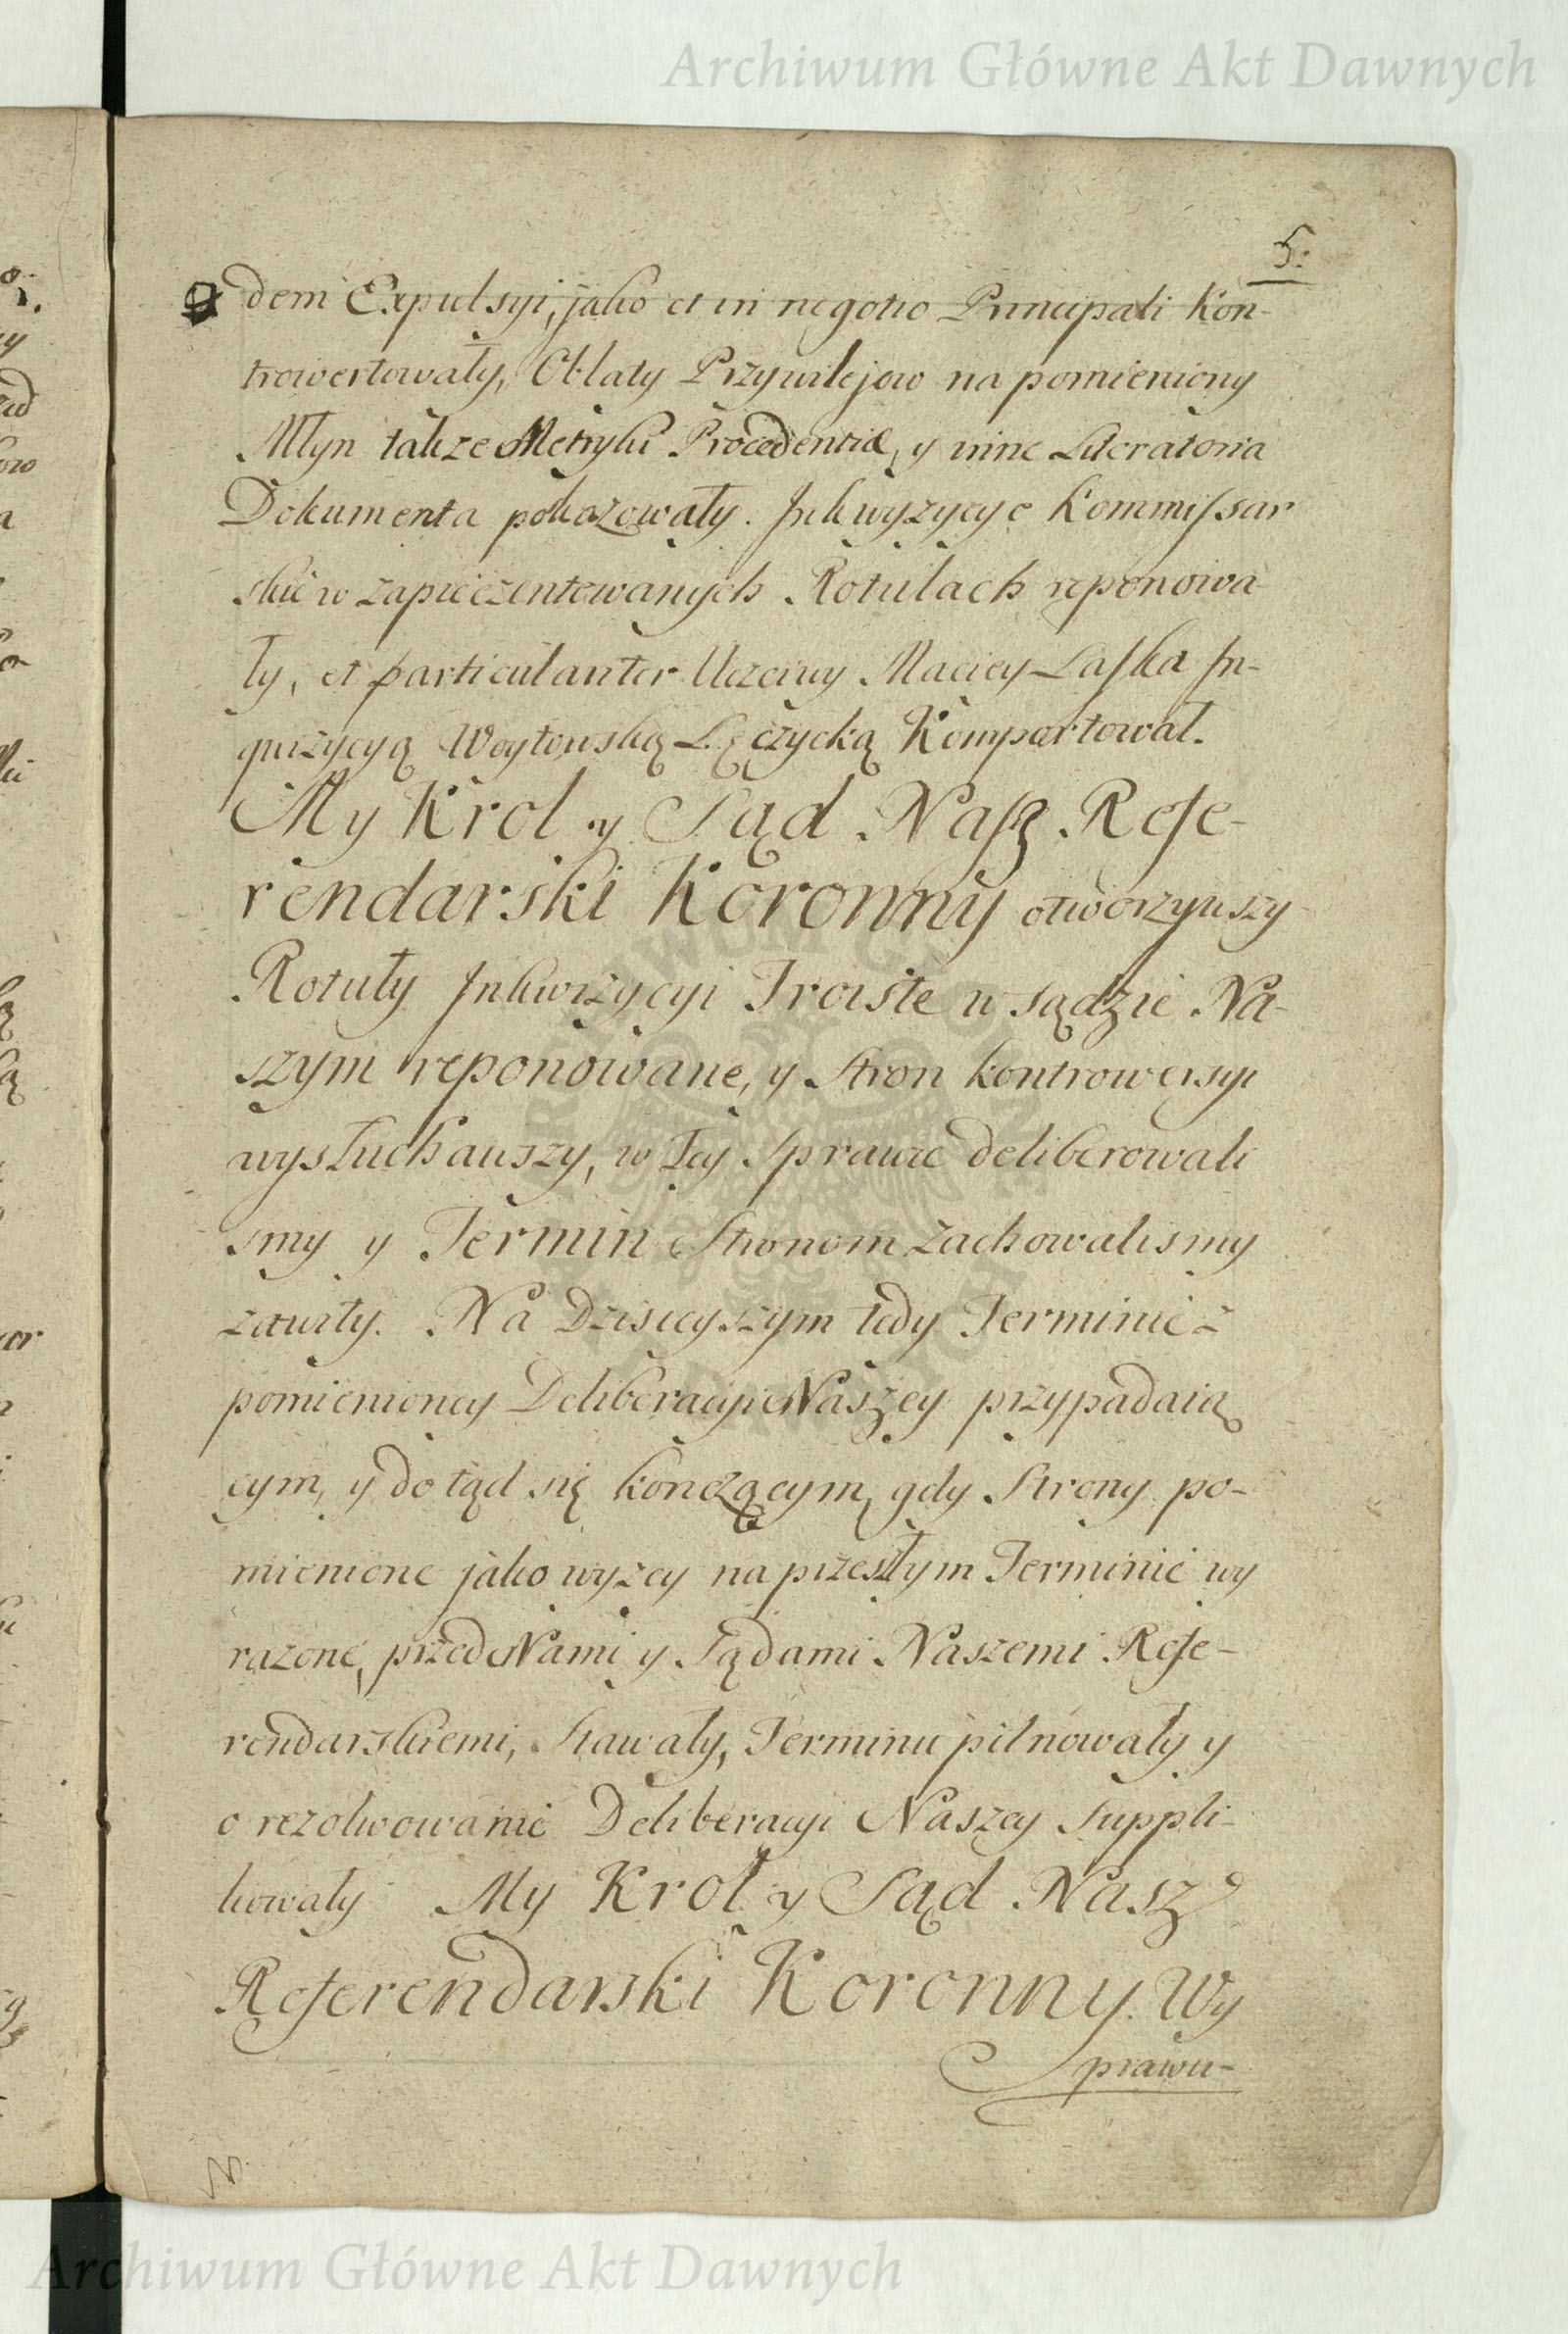 Archiwum Główne Akt Dawnych
5.
dem Expulsyi, jako et in negotio Principali Kon-
trowertowały, Oblaty Przywilejow na pomieniony
Młyn takze Metryki Procedentiæ, y inne Literatoria
Dokumenta pokazowały. Inkwyzycye Kommissar
skie w zapieczentowanych Rotulach reponowa-
ły, et particulariter Uczciwy Maciey Laska In-
quizycyą Woytowską Lęczycką Komportował.
My Krol y Sąd Nasz Refe-
rendarski Koronny otworzywszy
Rotuły Inkwizycyi Troiste w sądzie Na-
szym reponowane, y Stron kontrowersyi
wysłuchawszy, w tey Sprawie deliberowali
smy y Termin Stronom zachowalismy
zawity. Na Dzisieyszym tedy Terminie z
pomienioney Deliberacyi Naszey przypadaią
cym, y do tąd się kończącym, gdy Strony po-
mienione jako wyzey na przeszłym Terminie wy
razone, przed Nami y Sądami Naszemi Refe-
rendarskiemi, Stawały, Terminu pilnowały y
o rezolwowanie Deliberacyi Naszey Suppli-
kowały My Krol y Sąd Nasz
Referendarski Koronny. W
prawu-
Archiwum Główne Akt Dawnych